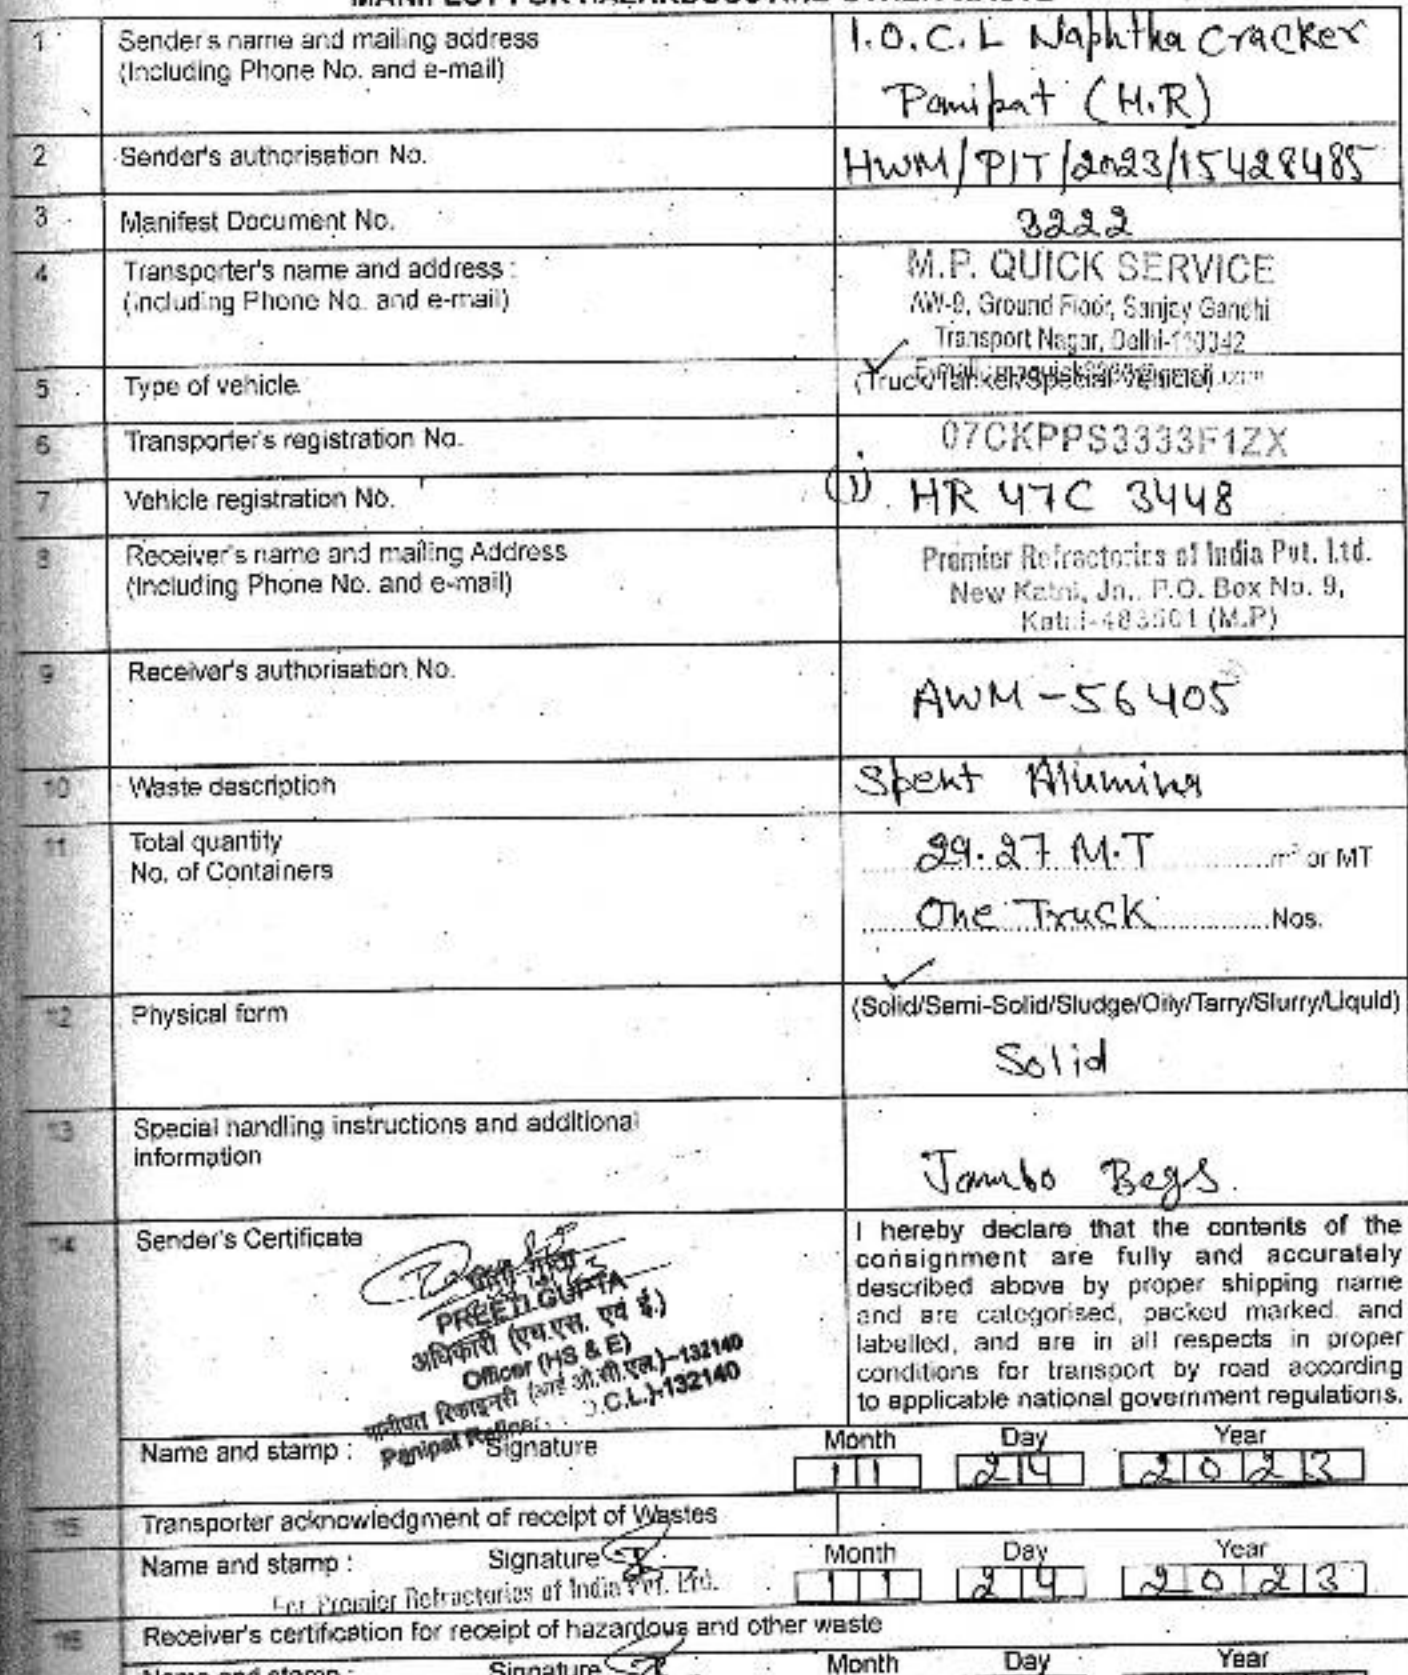 1 Sender's name and mailing address
(Including Phone No. and e-mail)
I.O.C.L Naphtha Cracker
Panipat (H.R)
2 Sender's authorisation No.
HWM/PIT/2023/15428485
3 Manifest Document No.
3222
4 Transporter's name and address :
(including Phone No. and e-mail)
M.P. QUICK SERVICE
AW-9, Ground Floor, Sanjay Gandhi
Transport Nagar, Delhi-110042
5 Type of vehicle
(Truck/Tanker/Special Vehicle)
6 Transporter's registration No.
07CKPPS3333F1ZX
7 Vehicle registration No.
(1) HR 47C 3448
8 Receiver's name and mailing Address
(Including Phone No. and e-mail)
Premier Refractories of India Pvt. Ltd.
New Katni, Jn., P.O. Box No. 9,
Katni-483501 (M.P)
9 Receiver's authorisation No.
AWM-56405
10 Waste description
Spent Alumina
11 Total quantity
No. of Containers
29.27 M.T m³ or MT
One Truck Nos.
12 Physical form
(Solid/Semi-Solid/Sludge/Oily/Tarry/Slurry/Liquid)
Solid
13 Special handling instructions and additional
information
Jambo Bags.
14 Sender's Certificate
I hereby declare that the contents of the
consignment are fully and accurately
described above by proper shipping name
and are categorised, packed marked, and
labelled, and are in all respects in proper
conditions for transport by road according
to applicable national government regulations.
PREETI GUPTA
अधिकारी (एच.एस. एवं ई.)
Officer (HS & E)
पानीपत रिफाइनरी (आई.ओ.सी.एल.)-132140
Panipat Refinery O.C.L.)-132140
Name and stamp : Signature Month Day Year
11 24 2023
15 Transporter acknowledgment of receipt of Wastes
Name and stamp : Signature Month Day Year
For Premier Refractories of India Pvt. Ltd.
11 24 2023
16 Receiver's certification for receipt of hazardous and other waste
Name and stamp : Signature Month Day Year